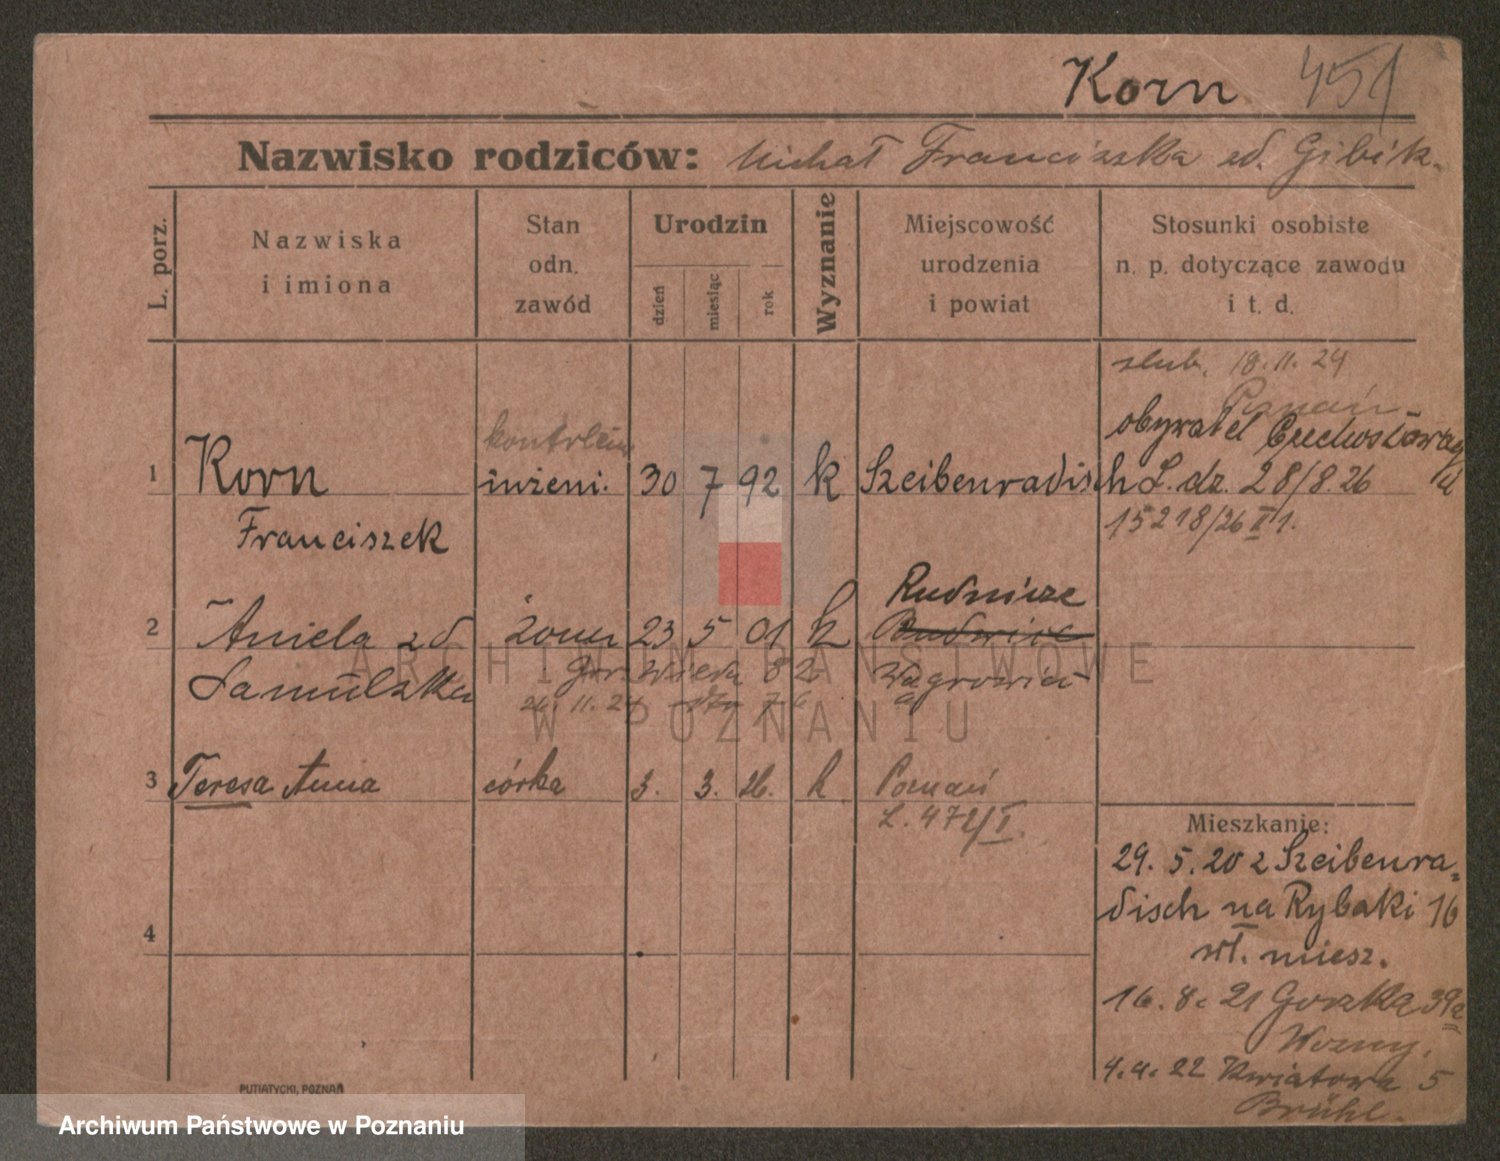 Korn 451
Nazwisko rodziców: Michał Franciszka zd. Gibik
L. porz.
Nazwiska
i imiona
Stan
odn.
zawód
Urodzin
dzień
miesiąc
rok
Wyznanie
Miejscowość
urodzenia
i powiat
Stosunki osobiste
n. p. dotyczące zawodu
i t. d.
ślub. 18.11.24
Poznań
obywatel
1 Korn inżeni. 30 7 92 k Szeibenradisch L. dz. 28/8.26
Franciszek
15218/26 II 1.
Rudnicze
2 Aniela zd żona 23 5 01 k
Wągrowiec
26.11.24
3 Teresa Anna córka 3. 3. 26. k Poznań
L. 472/I.
Mieszkanie:
29. 5. 20 z Szeibenra-
disch na Rybaki 16
wł. miesz.
4
16. 8. 21 39a
Wozny.
4.4.22 Kwiatowa 5
Brühl.
PUTIATYCKI, POZNAŃ
ARCHIWUM PAŃSTWOWE
W POZNANIU
Archiwum Państwowe w Poznaniu